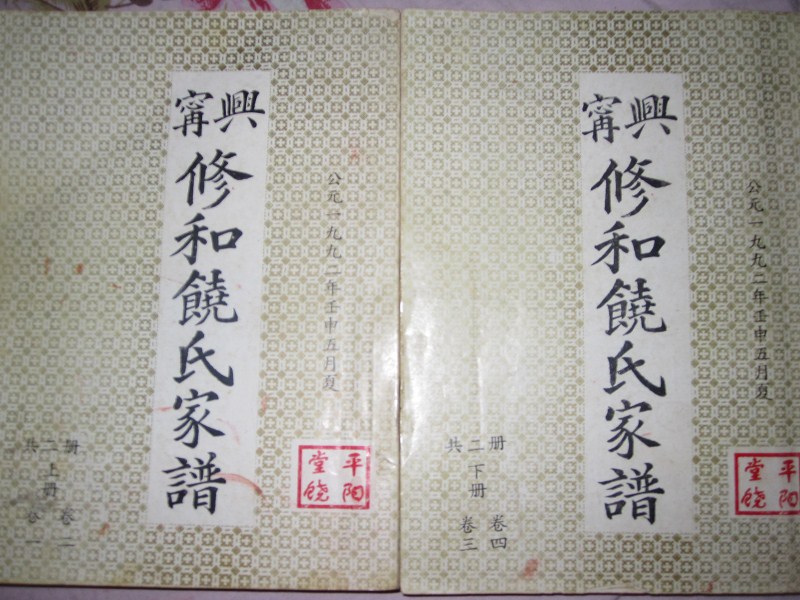 興甯
修和饒氏家譜
公元一九九二年壬申五月夏
共二册
上册
卷二
平阳
堂饶
興甯
修和饒氏家譜
公元一九九二年壬申五月夏
共二册
下册
卷三
卷四
平阳
堂饶